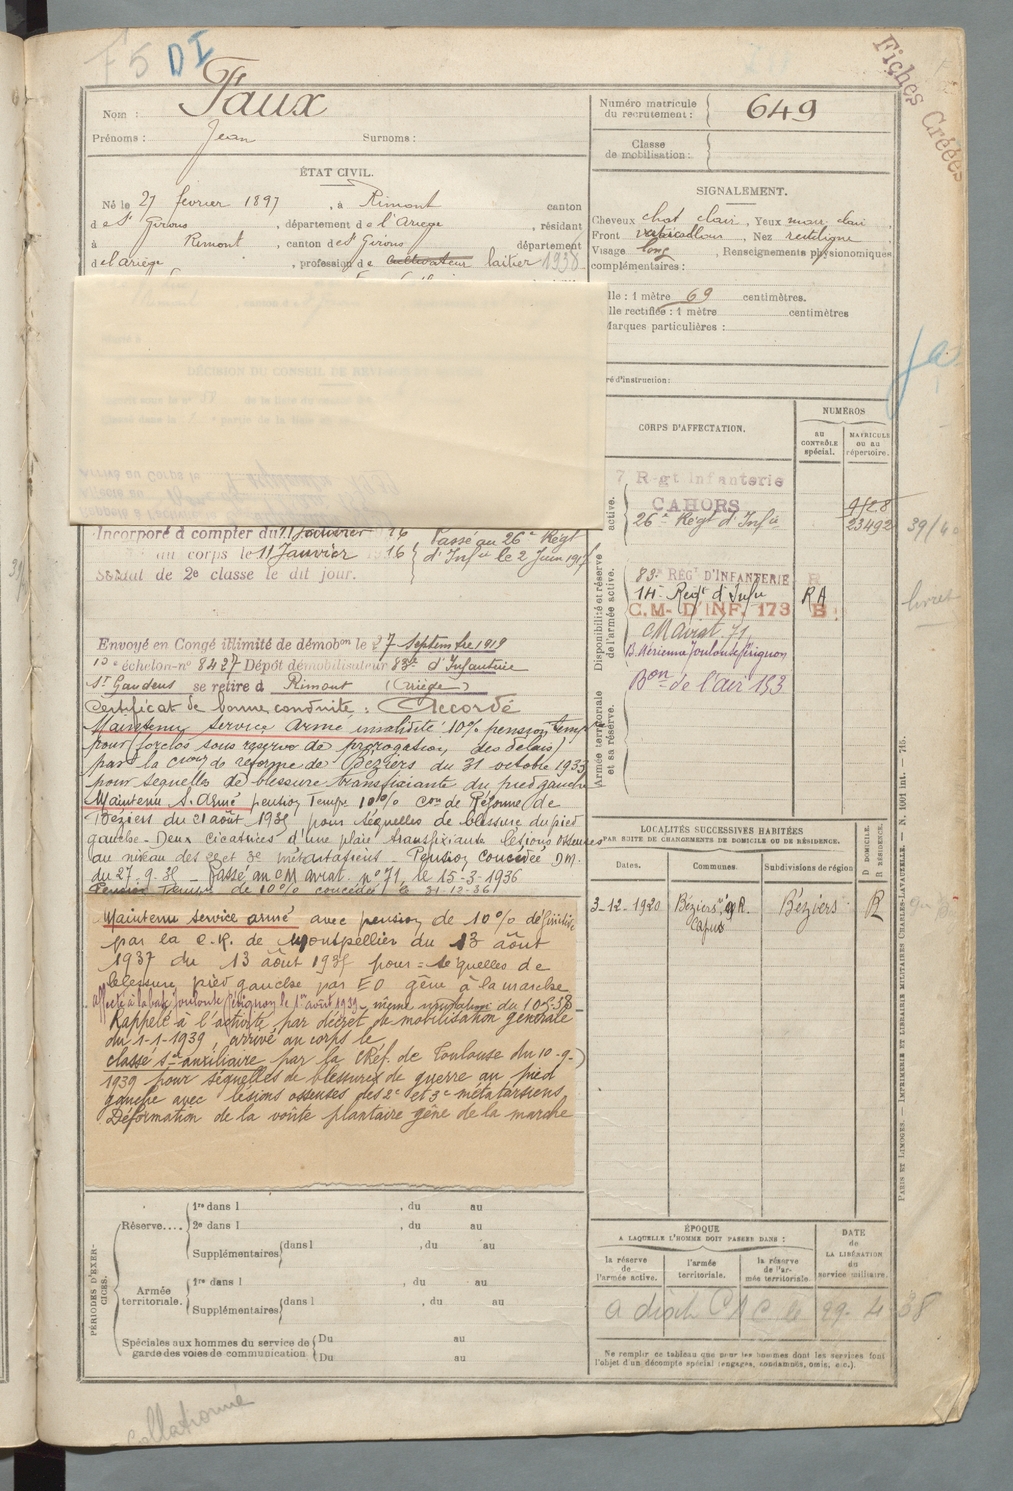 F5 DI
Fiches Créées
Nom : Faux
Prénoms : Jean Surnoms :
Numéro matricule du recrutement : 649
Classe de mobilisation :
ÉTAT CIVIL.
Né le 27 février 1897, à Rimont canton
de St Girons, département de l'Ariège, résidant
à Rimont, canton de St Girons département
de l'ariège, profession de cultivateur laitier 1938
SIGNALEMENT.
Cheveux chat clair, Yeux mar. clair
Front , Nez rectiligne
Visage long, Renseignements physionomiques
complémentaires :
lle : 1 mètre 69 centimètres.
lle rectifiée : 1 mètre centimètres
Marques particulières :
ré d'instruction :
DÉCISION DU CONSEIL DE
CORPS D'AFFECTATION.
NUMÉROS
AU CONTRÔLE spécial.
MATRICULE OU AU répertoire.
active.
7 Rgt Infanterie
CAHORS
26e Regt d'Infie 23492
39/40
Incorporé à compter du 11
au corps le 11 Janvier 1916
Soldat de 2e classe le dit jour.
Passé au 26e Régt
d'Infie le 2 Juin 1917
Disponibilité et réserve de l'armée active.
83e REGt D'INFANTERIE R
14e Regt d'Infie RA
C.M. D'INF. 173 B
CM aviat. 71
B. Aérienne Toulouse Pérignon
Bon de l'air 153
livret
Armée territoriale et sa réserve.
Envoyé en Congé illimité de démobon le 7 Septembre 1919
echelon-n° 8427 Dépôt démobilisateur 83e d'Infanterie
St Gaudens se retire à Rimont (Ariège)
Certificat de bonne conduite : Accordé
Maintenu service armé invalidité 10% pension temp
pour (forclos sous réserve de prorogation des délais)
par la cion de réforme de Béziers du 31 octobre 1933
pour sequelles de blessure transfixiante du pied gauche
Maintenu S. Armé pension Tempe 10% Con de Réforme de
Béziers du 21 août 1935 pour séquelles de blessure du pied
gauche - Deux cicatrices d'une plaie transfixiante lésions osseuses
au niveau des 2e et 3e métatarsiens - Pension concédée DM.
du 27.9.35 - Passé au CM aviat. n° 71, le 15-3-1936
Pension Temp de 10% concédée le 31-12-36
Maintenu service armé avec pension de 10% définitive
par la C.R. de Montpellier du 13 août
1937 du 13 août 1935 pour = séquelles de
blessure pied gauche par EO gêne à la marche
affecté à la base Toulouse Pérignon le 1er avril 1939 - même mutation du 10-5-38 -
Rappelé à l'activité par décret de mobilisation générale
du 1-1-1939, arrivé au corps le
classé sce auxiliaire par la CRéf. de Toulouse du 10-9-
1939 pour séquelles de blessures de guerre au pied
gauche avec lésions osseuses des 2e et 3e métatarsiens
Déformation de la voûte plantaire gêne de la marche
LOCALITÉS SUCCESSIVES HABITÉES
PAR SUITE DE CHANGEMENTS DE DOMICILE OU DE RÉSIDENCE.
Dates. Communes. Subdivisions de région D DOMICILE. R RÉSIDENCE.
3-12-1920 Béziers Béziers R
ÉPOQUE
A LAQUELLE L'HOMME DOIT PASSER DANS :
DATE de LA LIBÉRATION du service militaire.
la réserve de l'armée active.
l'armée territoriale.
la réserve de l'armée territoriale.
29- 4 38
Ne remplir ce tableau que pour les hommes dont les services font
l'objet d'un décompte spécial (engagés, condamnés, omis, etc.).
PÉRIODES D'EXERCICES.
Réserve....
1re dans l , du au
2e dans l , du au
Supplémentaires dans l , du au
Armée territoriale.
1re dans l , du au
Supplémentaires dans l , du au
Spéciales aux hommes du service de
garde des voies de communication
Du au
Du au
PARIS ET LIMOGES. — IMPRIMERIE ET LIBRAIRIE MILITAIRES CHARLES-LAVAUZELLE. — N. 1001 int. — 715.
Collationné